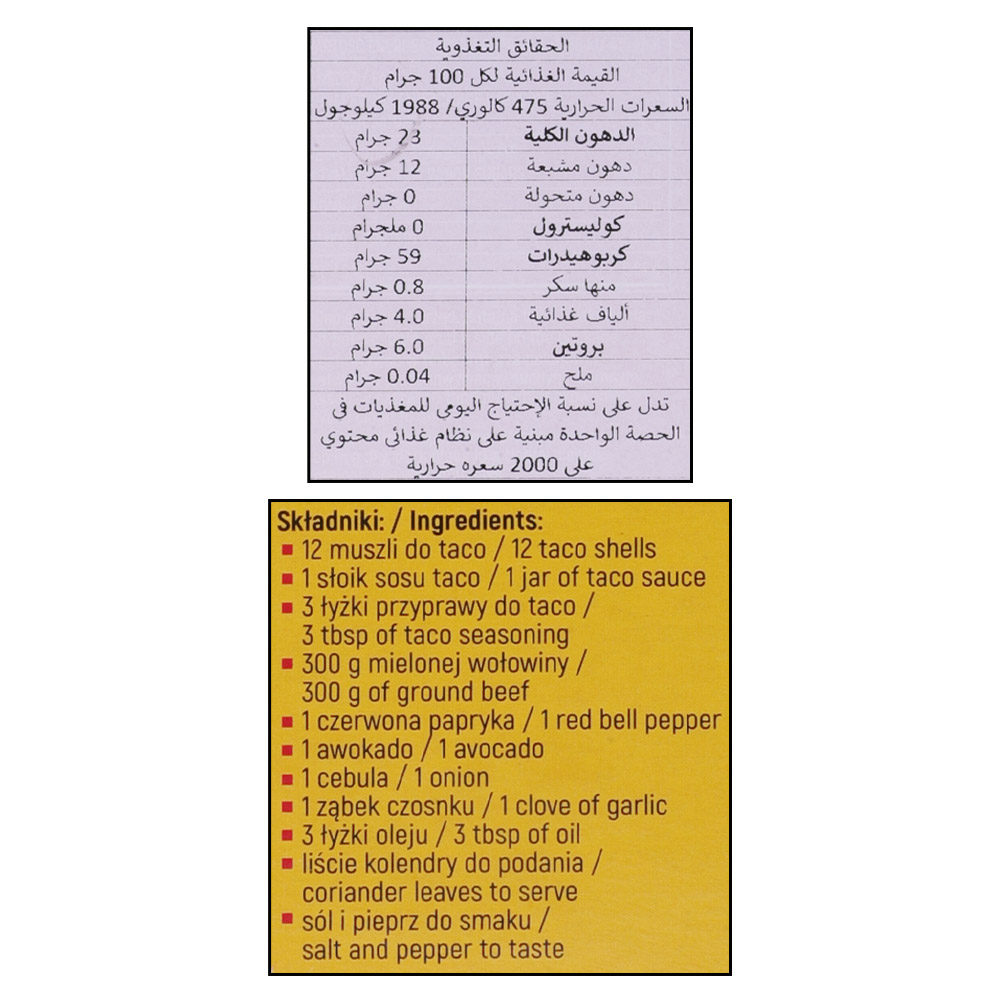 الحقائق التغذوية
القيمة الغذائية لكل 100 جرام
السعرات الحرارية 475 كالوري/ 1988 كيلوجول
الدهون الكلية 23 جرام
دهون مشبعة 12 جرام
دهون متحولة 0 جرام
كوليسترول 0 ملجرام
كربوهيدرات 59 جرام
منها سكر 0.8 جرام
ألياف غذائية 4.0 جرام
بروتين 6.0 جرام
ملح 0.04 جرام
تدل على نسبة الإحتياج اليومى للمغذيات فى
الحصة الواحدة مبنية على نظام غذائى محتوي
على 2000 سعره حرارية
Składniki: / Ingredients:
▪ 12 muszli do taco / 12 taco shells
▪ 1 słoik sosu taco / 1 jar of taco sauce
▪ 3 łyżki przyprawy do taco /
3 tbsp of taco seasoning
▪ 300 g mielonej wołowiny /
300 g of ground beef
▪ 1 czerwona papryka / 1 red bell pepper
▪ 1 awokado / 1 avocado
▪ 1 cebula / 1 onion
▪ 1 ząbek czosnku / 1 clove of garlic
▪ 3 łyżki oleju / 3 tbsp of oil
▪ liście kolendry do podania /
coriander leaves to serve
▪ sól i pieprz do smaku /
salt and pepper to taste